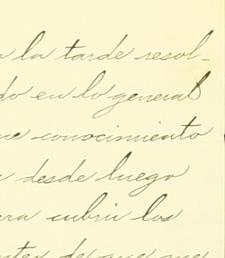 a la tarde resol-
do en lo general
conocimiento
desde luego
cubrir los
de que que